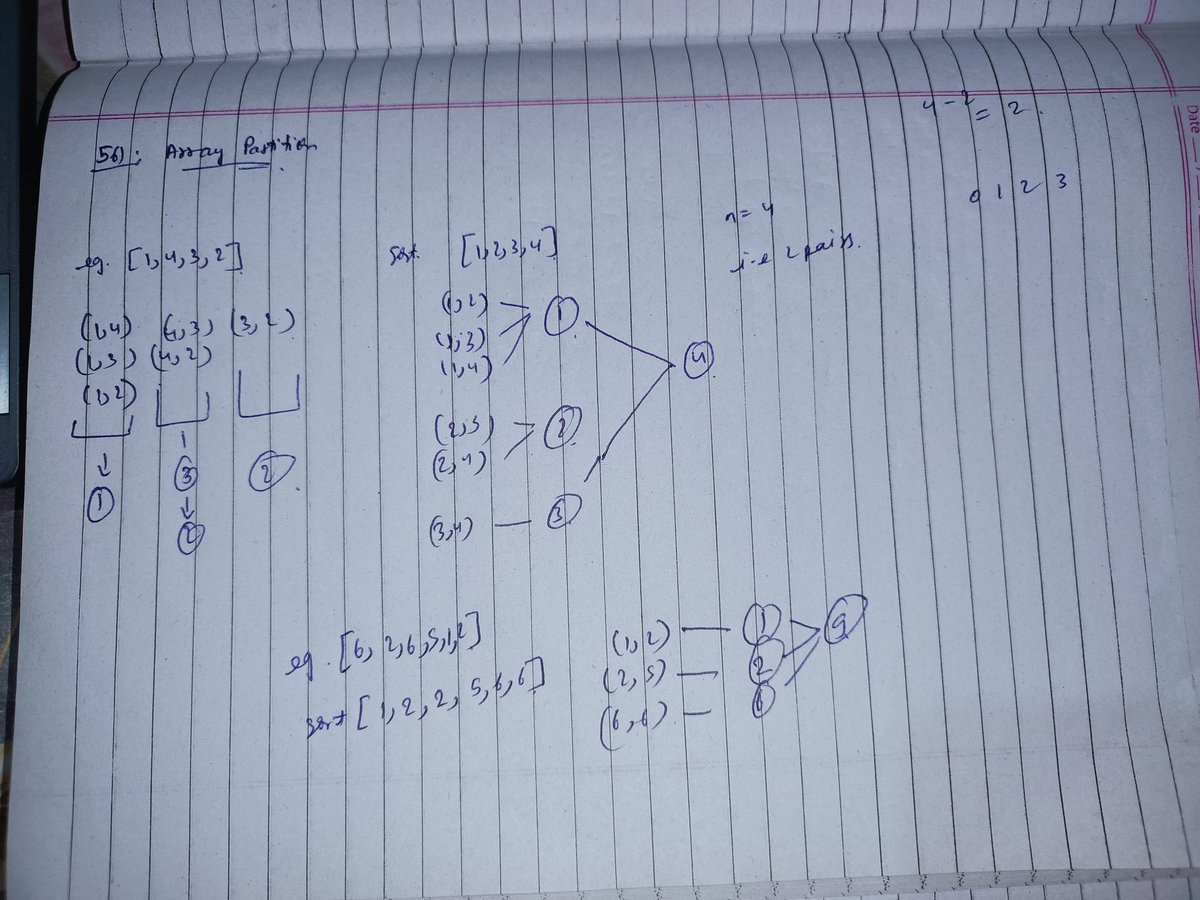 4-2 = 2.
Date
561: Array Partition
0 1 2 3
n=4
i.e 2 pairs.
eg. [1,4,3,2]
sort. [1,2,3,4]
(1,4) (4,3) (3,2)
(1,3) (4,2)
(1,2)
1
3
2
2
(1,2)
(1,3)
(1,4)
1
(2,3)
(2,4)
2
(3,4)
3
4
eg. [6,2,6,5,1,2]
sort [1,2,2,5,6,6]
(1,2) 1
(2,5) 2
(6,6) 6
9